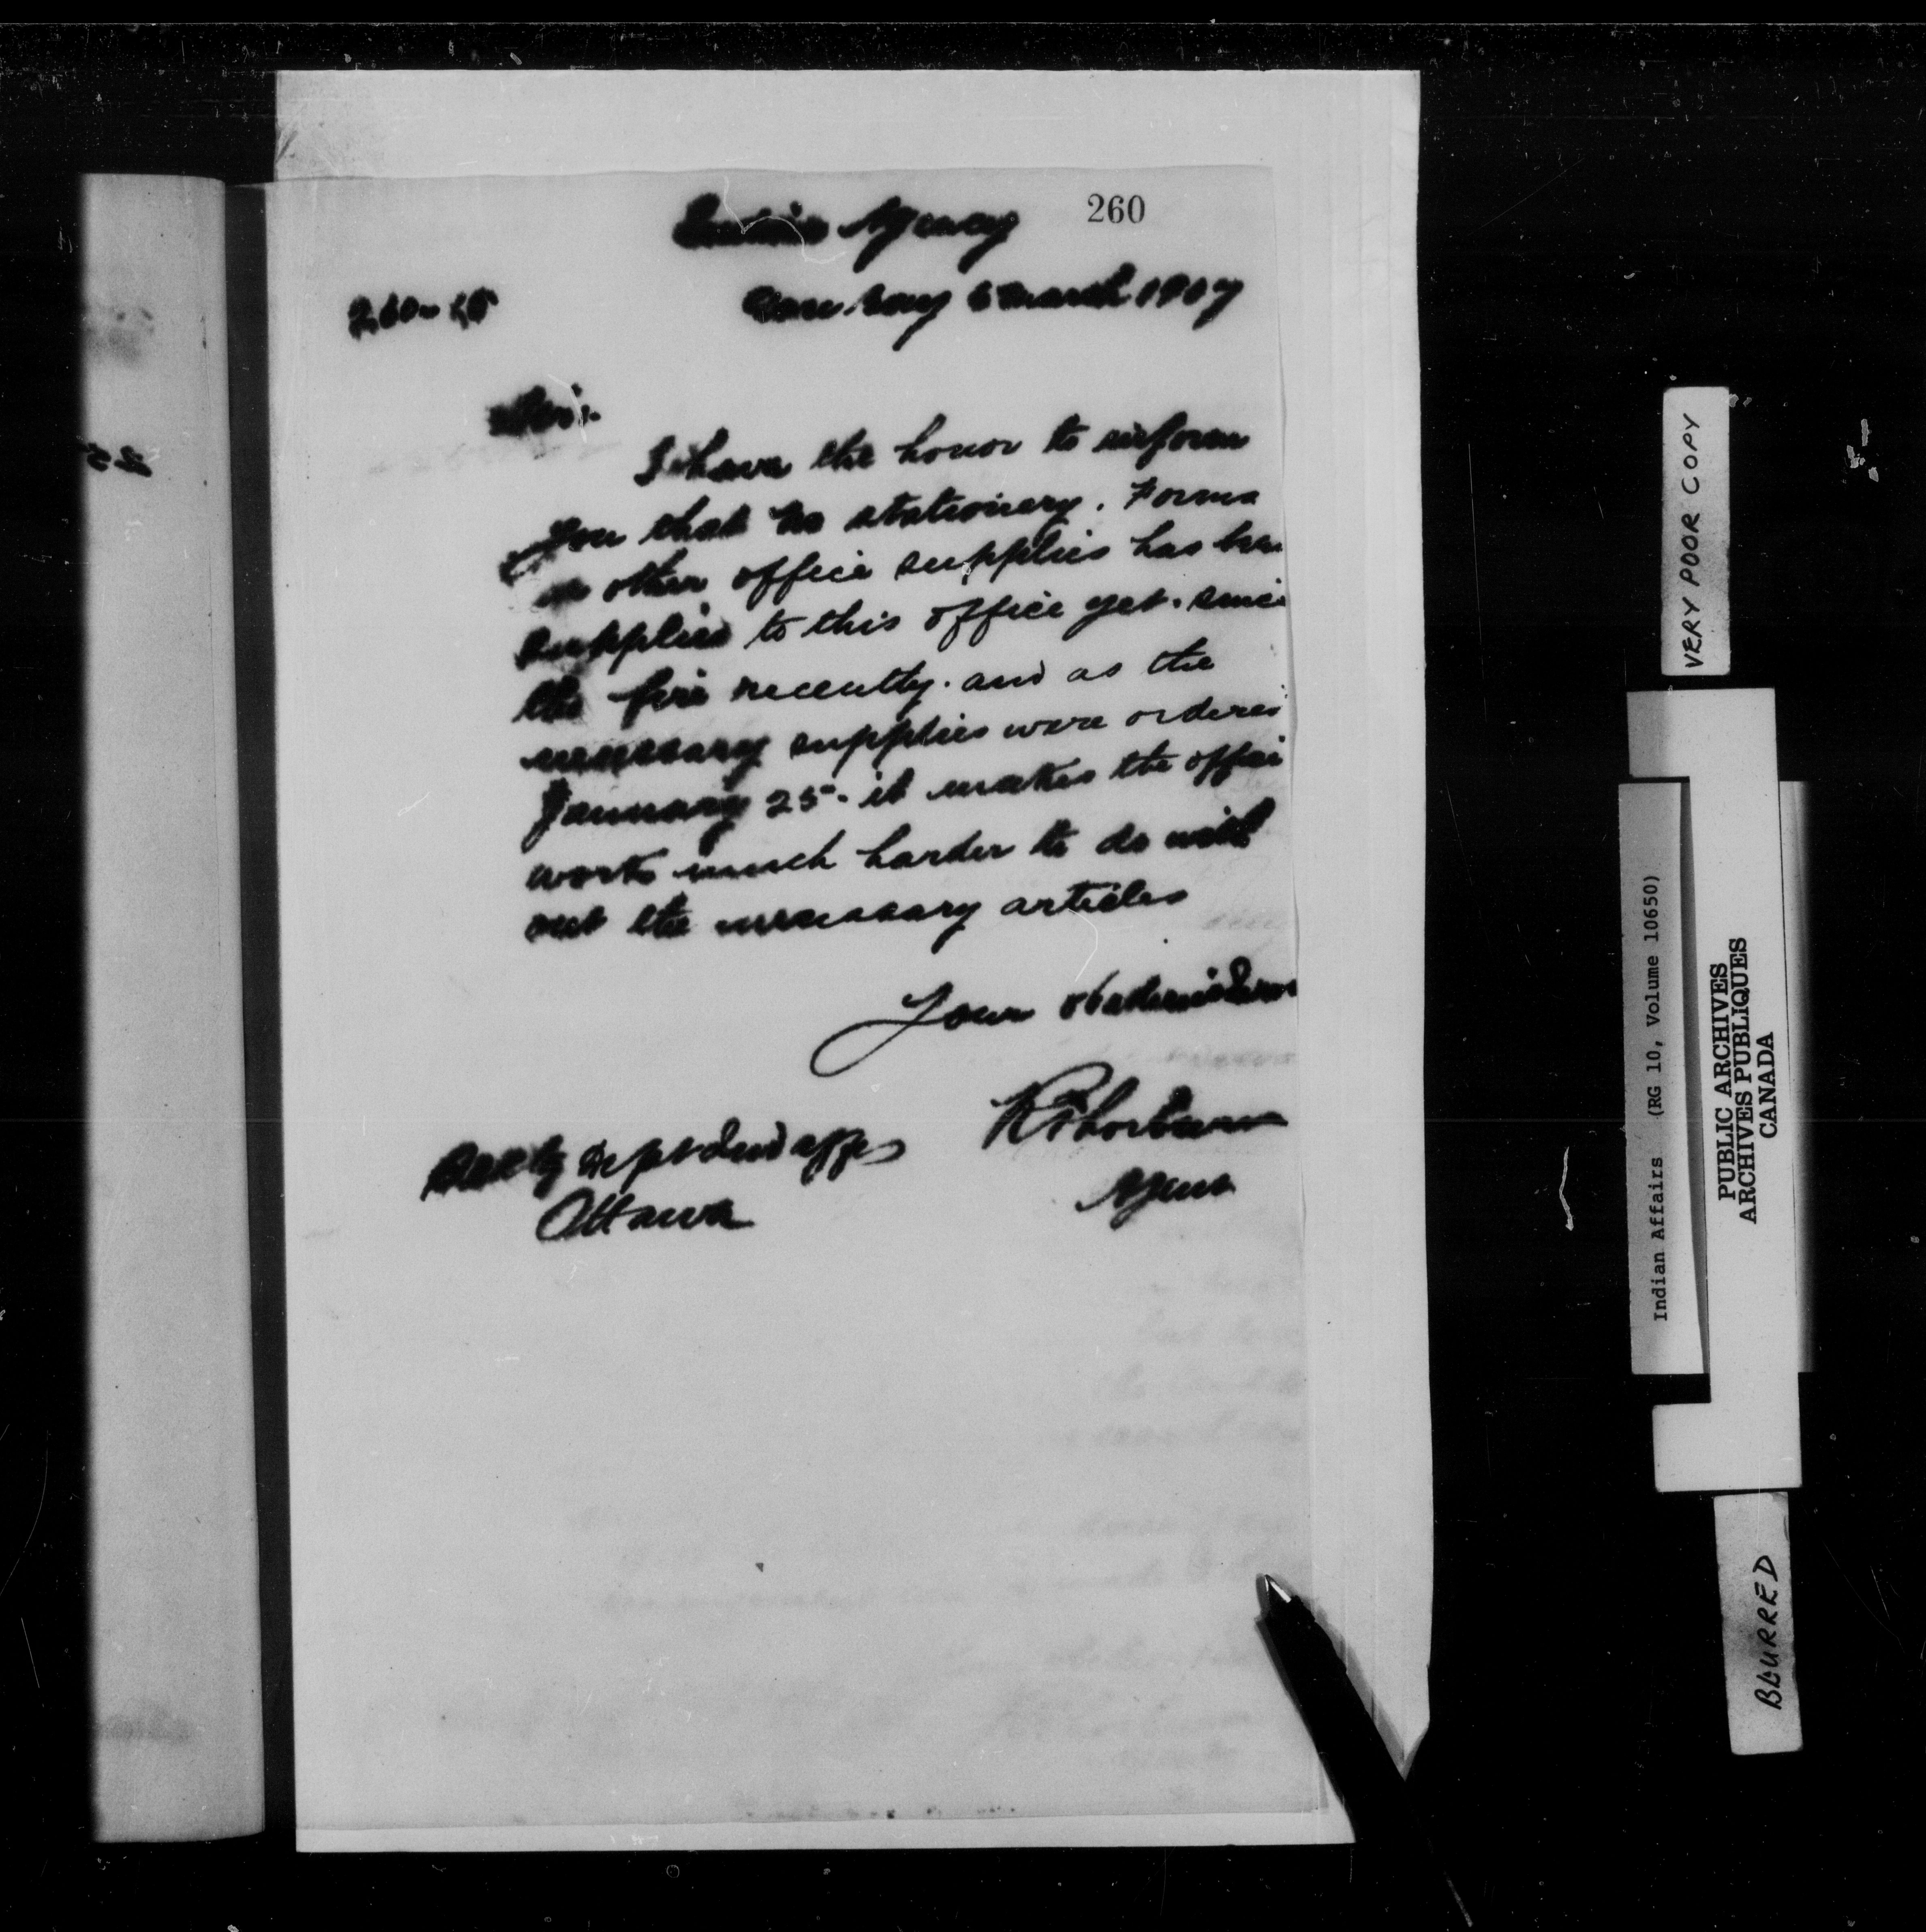 Agency 260
260-
6 March 1907
Sir:
I have the honor to inform
you that no stationery. Forms
or other office supplies has been
supplied to this office yet. since
the fire recently. and as the
necessary supplies were ordered
January 25. it makes the office
work much harder to do with
out the necessary articles
Your obedient
Agent
Secty Dept Ind affrs
Ottawa
VERY POOR COPY
Indian Affairs (RG 10, Volume 10650)
PUBLIC ARCHIVES
ARCHIVES PUBLIQUES
CANADA
BLURRED